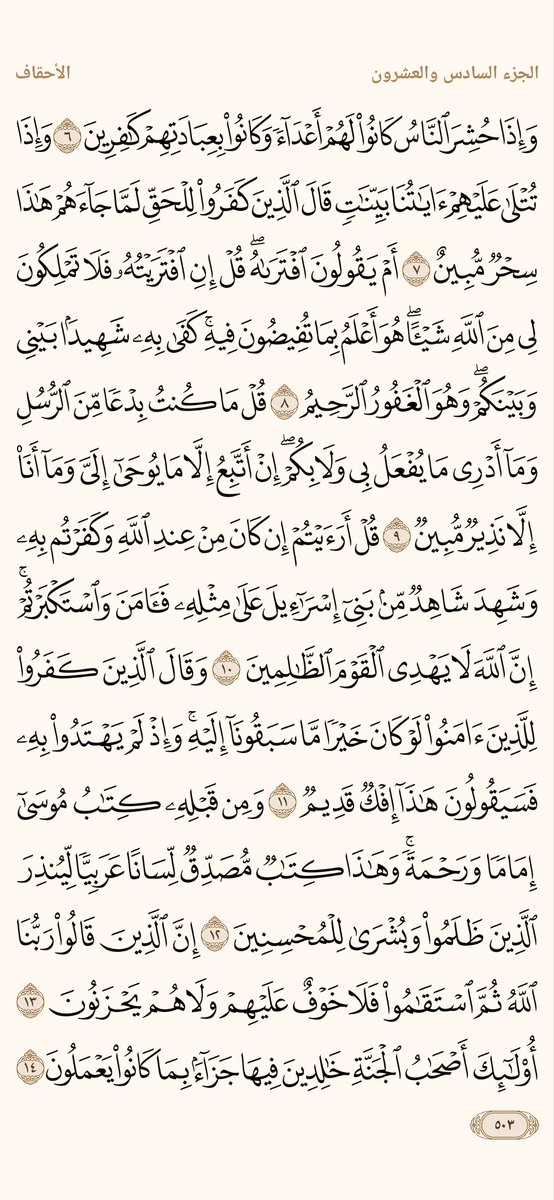 الجزء السادس والعشرون
الأحقاف
وَإِذَا حُشِرَ ٱلنَّاسُ كَانُوا۟ لَهُمْ أَعْدَآءً وَكَانُوا۟ بِعِبَادَتِهِمْ كَٰفِرِينَ ٦ وَإِذَا
تُتْلَىٰ عَلَيْهِمْ ءَايَٰتُنَا بَيِّنَٰتٍ قَالَ ٱلَّذِينَ كَفَرُوا۟ لِلْحَقِّ لَمَّا جَآءَهُمْ هَٰذَا
سِحْرٌ مُّبِينٌ ٧ أَمْ يَقُولُونَ ٱفْتَرَىٰهُ ۖ قُلْ إِنِ ٱفْتَرَيْتُهُۥ فَلَا تَمْلِكُونَ
لِى مِنَ ٱللَّهِ شَيْـًٔا ۖ هُوَ أَعْلَمُ بِمَا تُفِيضُونَ فِيهِ ۚ كَفَىٰ بِهِۦ شَهِيدًۢا بَيْنِى
وَبَيْنَكُمْ ۖ وَهُوَ ٱلْغَفُورُ ٱلرَّحِيمُ ٨ قُلْ مَا كُنتُ بِدْعًا مِّنَ ٱلرُّسُلِ
وَمَآ أَدْرِى مَا يُفْعَلُ بِى وَلَا بِكُمْ ۖ إِنْ أَتَّبِعُ إِلَّا مَا يُوحَىٰٓ إِلَىَّ وَمَآ أَنَا۠
إِلَّا نَذِيرٌ مُّبِينٌ ٩ قُلْ أَرَءَيْتُمْ إِن كَانَ مِنْ عِندِ ٱللَّهِ وَكَفَرْتُم بِهِۦ
وَشَهِدَ شَاهِدٌ مِّنۢ بَنِىٓ إِسْرَٰٓءِيلَ عَلَىٰ مِثْلِهِۦ فَـَٔامَنَ وَٱسْتَكْبَرْتُمْ ۚ
إِنَّ ٱللَّهَ لَا يَهْدِى ٱلْقَوْمَ ٱلظَّٰلِمِينَ ١٠ وَقَالَ ٱلَّذِينَ كَفَرُوا۟
لِلَّذِينَ ءَامَنُوا۟ لَوْ كَانَ خَيْرًا مَّا سَبَقُونَآ إِلَيْهِ ۚ وَإِذْ لَمْ يَهْتَدُوا۟ بِهِۦ
فَسَيَقُولُونَ هَٰذَآ إِفْكٌ قَدِيمٌ ١١ وَمِن قَبْلِهِۦ كِتَٰبُ مُوسَىٰٓ
إِمَامًا وَرَحْمَةً ۚ وَهَٰذَا كِتَٰبٌ مُّصَدِّقٌ لِّسَانًا عَرَبِيًّا لِّيُنذِرَ
ٱلَّذِينَ ظَلَمُوا۟ وَبُشْرَىٰ لِلْمُحْسِنِينَ ١٢ إِنَّ ٱلَّذِينَ قَالُوا۟ رَبُّنَا
ٱللَّهُ ثُمَّ ٱسْتَقَٰمُوا۟ فَلَا خَوْفٌ عَلَيْهِمْ وَلَا هُمْ يَحْزَنُونَ ١٣
أُو۟لَٰٓئِكَ أَصْحَٰبُ ٱلْجَنَّةِ خَٰلِدِينَ فِيهَا جَزَآءًۢ بِمَا كَانُوا۟ يَعْمَلُونَ ١٤
٥٠٣